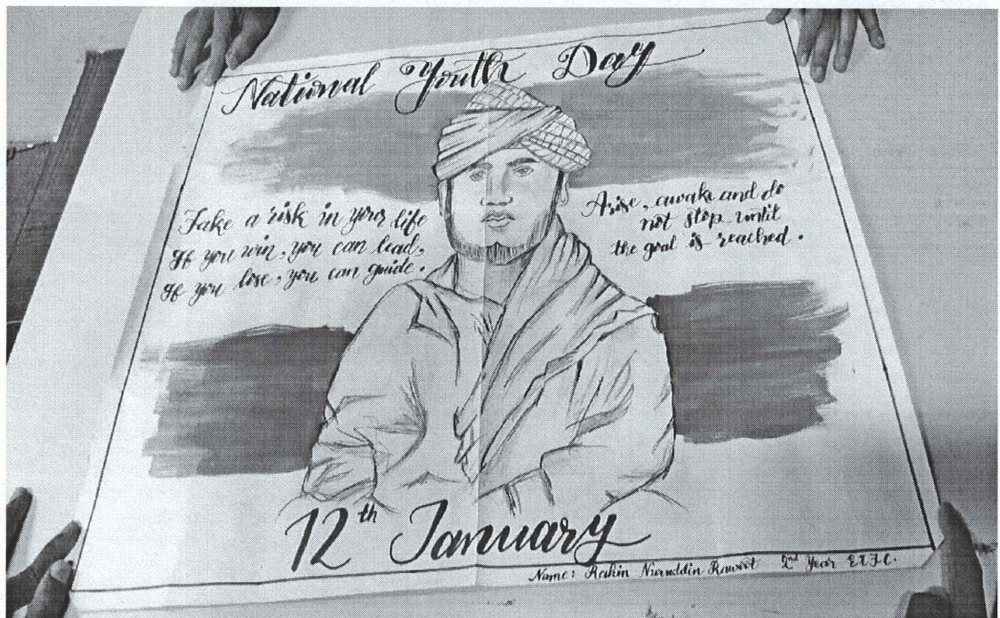 National Youth Day
Take a risk in your life
If you win, you can lead,
If you lose, you can guide.
Arise, awake and do
not stop until
the goal is reached.
12th January
Name: Rahin Nuruddin 2nd Year